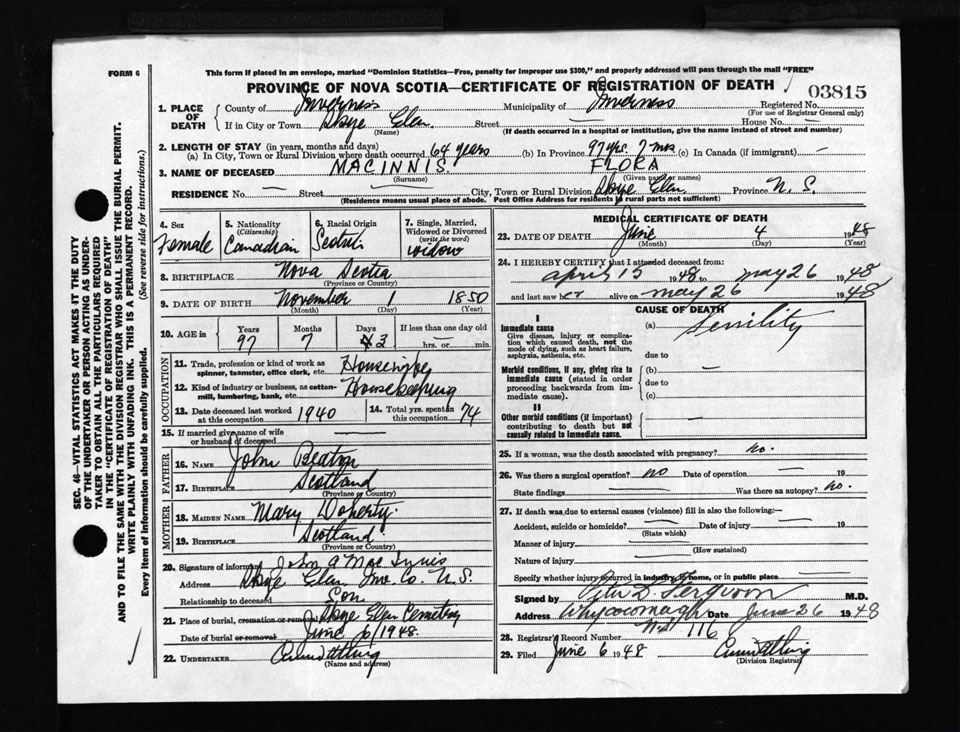 FORM 6
This form if placed in an envelope, marked "Dominion Statistics—Free, penalty for improper use $300," and properly addressed will pass through the mail "FREE"
PROVINCE OF NOVA SCOTIA—CERTIFICATE OF REGISTRATION OF DEATH
03815
1. PLACE OF DEATH
County of Inverness Municipality of Inverness Registered No.
(For use of Registrar General only)
If in City or Town Skye Glen Street — House No. —
(Name) (If death occurred in a hospital or institution, give the name instead of street and number)
2. LENGTH OF STAY (in years, months and days)
(a) In City, Town or Rural Division where death occurred 64 years (b) In Province 97 yrs. 7 mos. (c) In Canada (if immigrant) —
3. NAME OF DECEASED MACINNIS FLORA
(Surname) (Given name or names)
RESIDENCE No. — Street — City, Town or Rural Division Skye Glen Province N. S.
(Residence means usual place of abode. Post Office Address for residents in rural parts not sufficient)
4. Sex
Female
5. Nationality
(Citizenship)
Canadian
6. Racial Origin
Scotch
7. Single, Married,
Widowed or Divorced
(write the word)
widow
8. BIRTHPLACE Nova Scotia
(Province or Country)
9. DATE OF BIRTH November 1 1850
(Month) (Day) (Year)
10. AGE in Years Months Days If less than one day old
97 7 3 hrs. or min.
OCCUPATION
11. Trade, profession or kind of work as Housewife
spinner, teamster, office clerk, etc.
12. Kind of industry or business, as cotton- Housekeeping
mill, lumbering, bank, etc.
13. Date deceased last worked at this occupation 1940
14. Total yrs. spent in this occupation 74
15. If married give name of wife
or husband of deceased —
FATHER
16. NAME John Beaton
17. BIRTHPLACE Scotland
(Province or Country)
MOTHER
18. MAIDEN NAME Mary Doherty
19. BIRTHPLACE Scotland
(Province or Country)
20. Signature of informant John A Mac Innis
Address Skye Glen Inv. Co. N. S.
Relationship to deceased Son
21. Place of burial, cremation or removal Skye Glen Cemetery
Date of burial or removal June 6/1948.
22. UNDERTAKER
(Name and address)
MEDICAL CERTIFICATE OF DEATH
23. DATE OF DEATH June 4 1948
(Month) (Day) (Year)
24. I HEREBY CERTIFY that I attended deceased from:
April 15 1948 to May 26 1948
and last saw her alive on May 26 1948
CAUSE OF DEATH
I
Immediate cause
Give disease, injury or complication which caused death, not the mode of dying, such as heart failure, asphyxia, asthenia, etc.
(a) Senility
due to
Morbid conditions, if any, giving rise to immediate cause (stated in order proceeding backwards from immediate cause).
(b) —
due to
(c)
II
Other morbid conditions (if important) contributing to death but not causally related to immediate cause.
25. If a woman, was the death associated with pregnancy? no.
26. Was there a surgical operation? no Date of operation — 19
State findings — Was there an autopsy? no.
27. If death was due to external causes (violence) fill in also the following:—
Accident, suicide or homicide? — Date of injury — 19
(State which)
Manner of injury —
(How sustained)
Nature of injury —
Specify whether injury occurred in industry, in home, or in public place —
Signed by Ferguson M.D.
Address Whycocomagh Date June 26 1948
N.S.
28. Registrar's Record Number 116
29. Filed June 6 1948
(Division Registrar)
SEC. 46—VITAL STATISTICS ACT MAKES IT THE DUTY
OF THE UNDERTAKER OR PERSON ACTING AS UNDER-
TAKER TO OBTAIN ALL THE PARTICULARS REQUIRED
IN THE "CERTIFICATE OF REGISTRATION OF DEATH"
AND TO FILE THE SAME WITH THE DIVISION REGISTRAR WHO SHALL ISSUE THE BURIAL PERMIT.
WRITE PLAINLY WITH UNFADING INK. THIS IS A PERMANENT RECORD.
Every item of information should be carefully supplied. (See reverse side for instructions.)